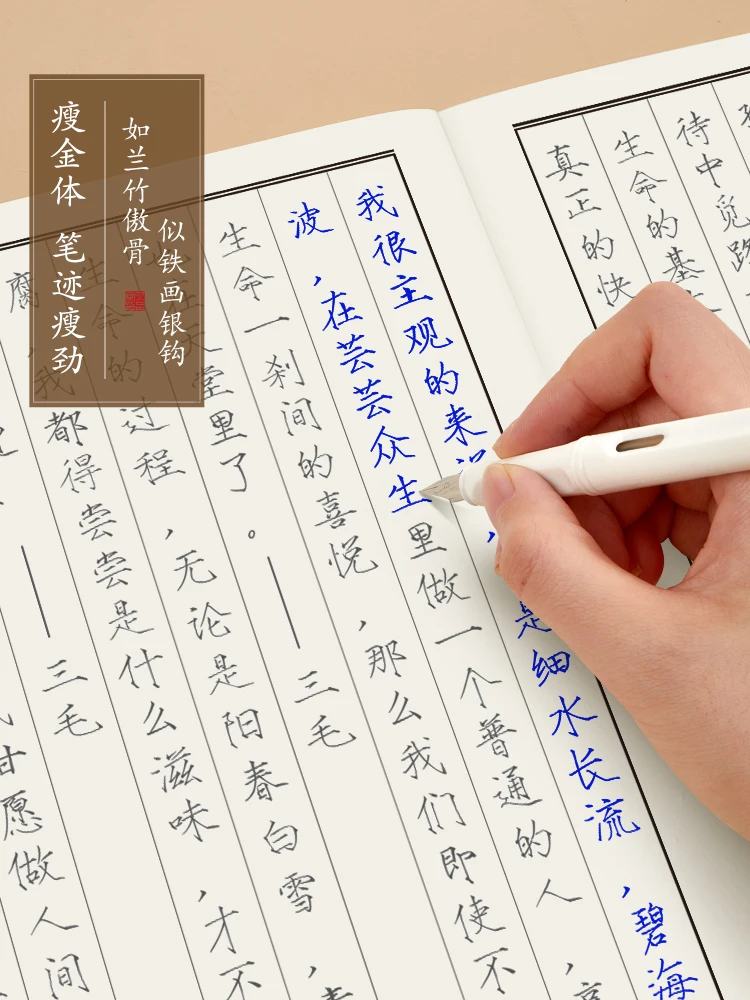 瘦金体 笔迹瘦劲
如兰竹傲骨
似铁画银钩
待中觅
生命的基
真正的快
我很主观的来，是细水长流，碧海
波，在芸芸众生里做一个普通的人，
生命一刹间的喜悦，那么我们即使不
在天堂里了。——三毛
生命的过程，无论是阳春白雪，青
腐，我都得尝尝是什么滋味，才不
——三毛
甘愿做人间